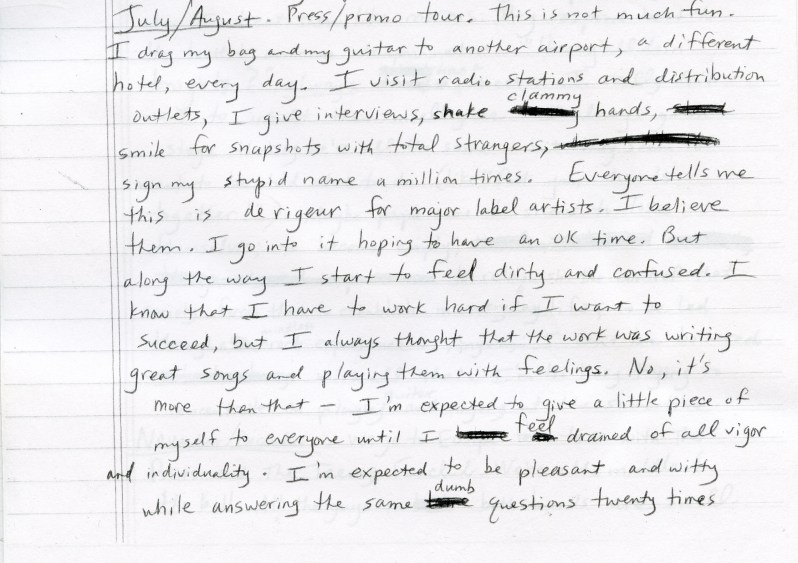 July/August. Press/promo tour. This is not much fun.
I drag my bag and my guitar to another airport, a different
hotel, every day. I visit radio stations and distribution
outlets, I give interviews, shake clammy hands,
smile for snapshots with total strangers,
sign my stupid name a million times. Everyone tells me
this is de rigeur for major label artists. I believe
them. I go into it hoping to have an OK time. But
along the way I start to feel dirty and confused. I
know that I have to work hard if I want to
succeed, but I always thought that the work was writing
great songs and playing them with feelings. No, it's
more than that — I'm expected to give a little piece of
myself to everyone until I feel drained of all vigor
and individuality. I'm expected to be pleasant and witty
while answering the same dumb questions twenty times